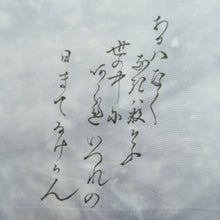 あるハなく
なきハ数そふ
世の中に
あはれいつれの
日まてなけかん